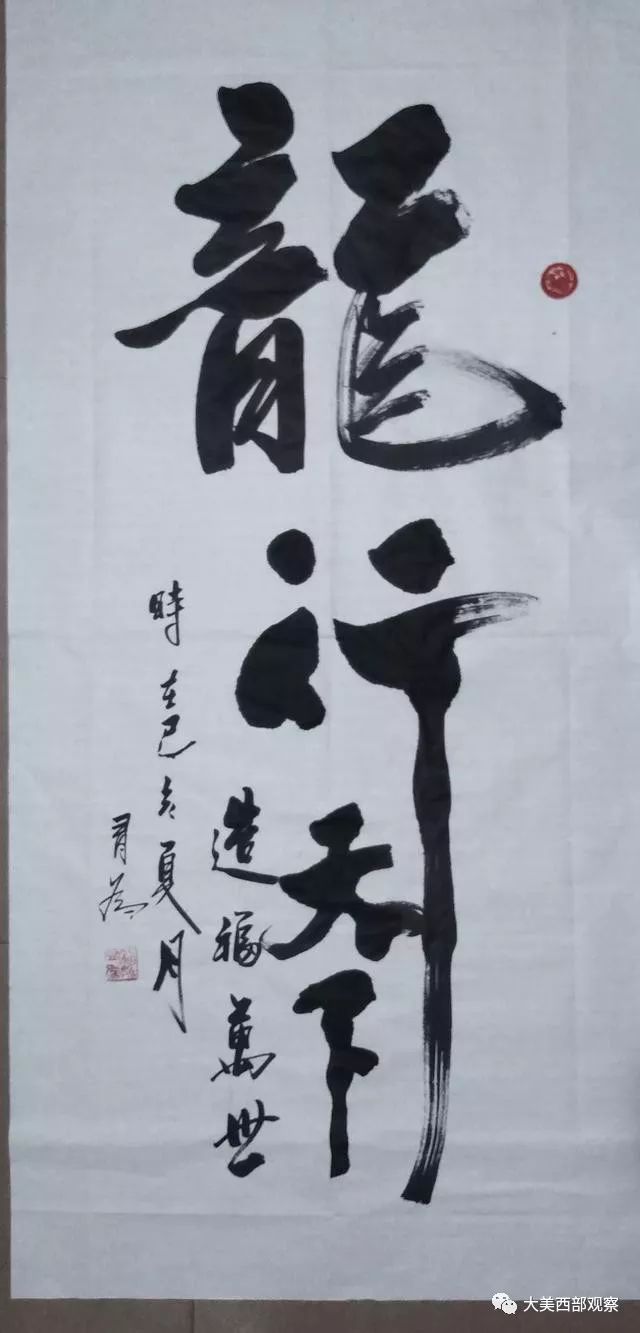 龍行天下
造福萬世
時在己亥夏月
大美西部观察